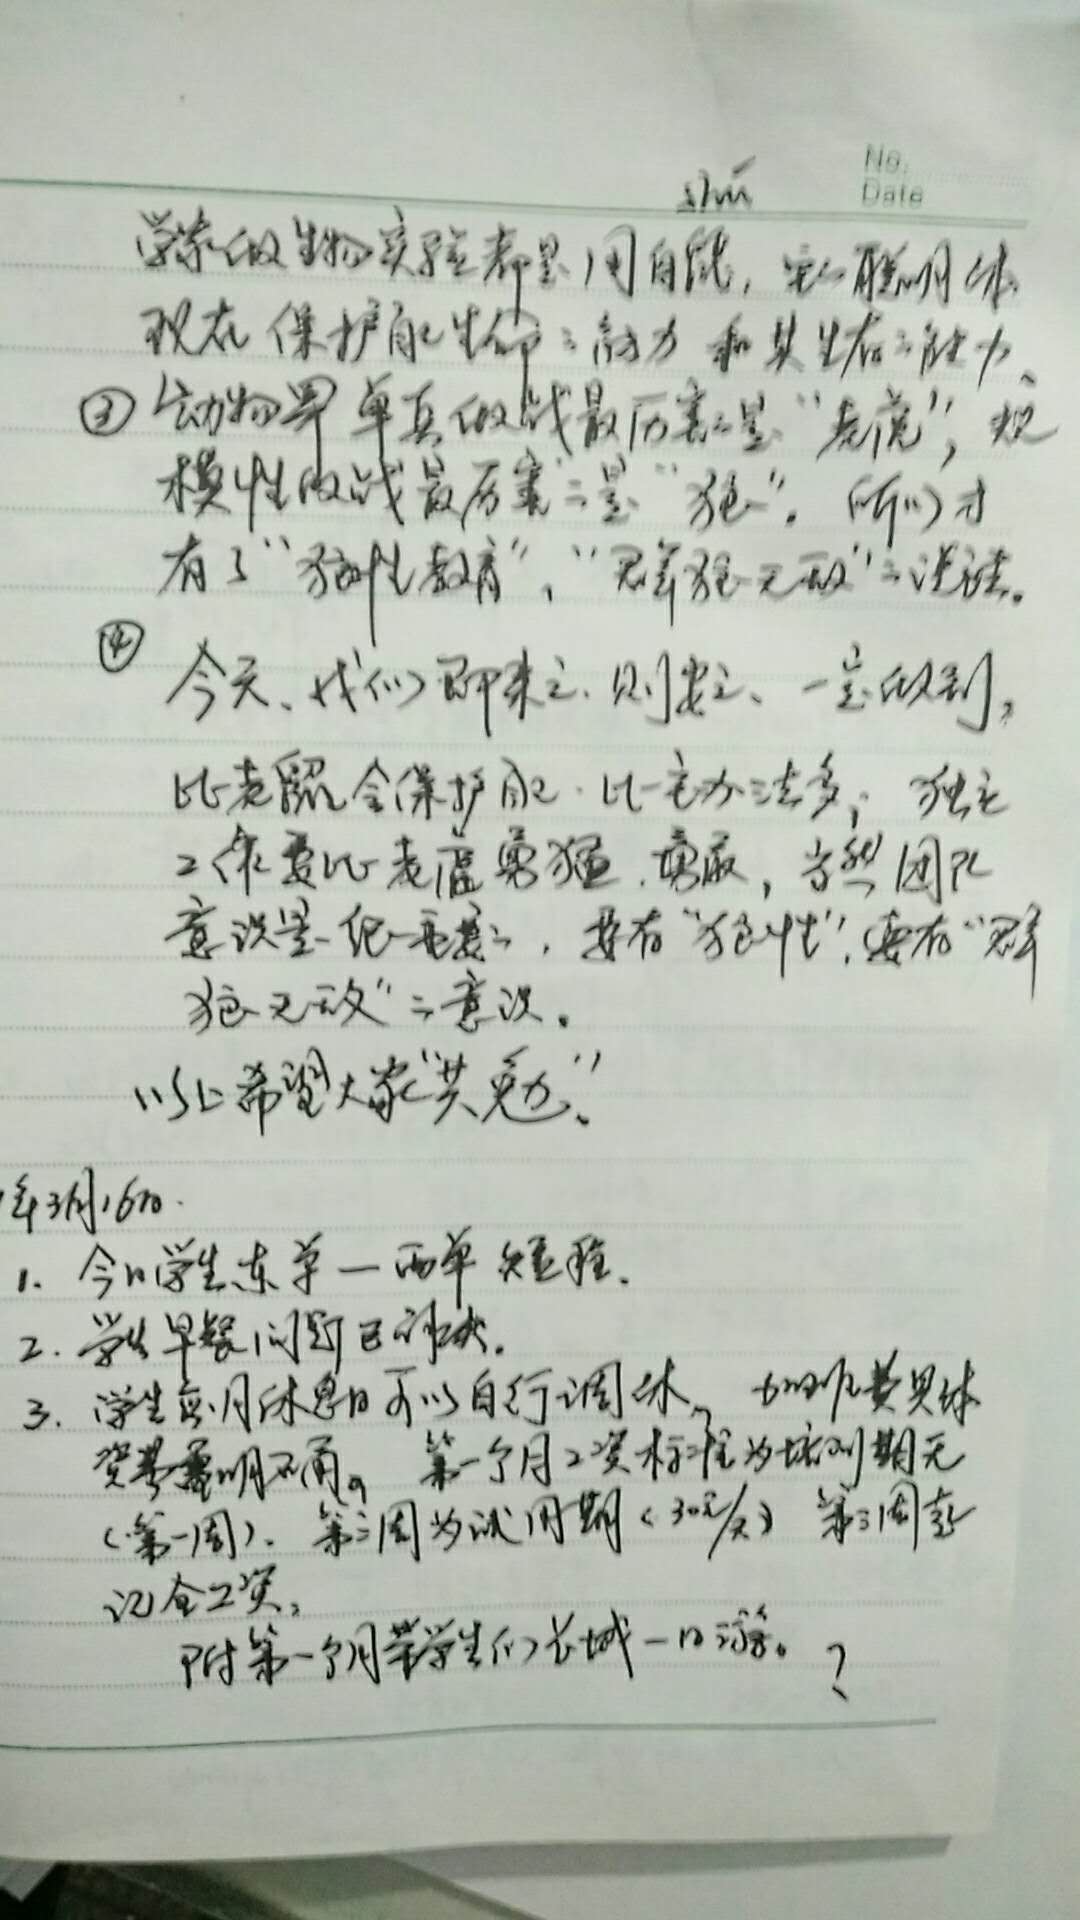 No.
Date
学家做生物实验都是用白鼠，它的聪明体
现在保护自己生命的能力和其生存的能力、
③ 动物界单兵做战最厉害的是“老虎”，规
模性做战最厉害的是“狼”。所以才
有了“狼性教育”、“群狼无敌”的说法。
④ 今天、我们即来之、则安之、一定做到，
比老鼠会保护自己·比它办法多；独立
工作要比老虎勇猛、勇敢，当然团队
意识是很重要的，要有“狼性”，要有“群
狼无敌”的意识。
以上希望大家“共勉”。
年3月16日.
1. 今日学生东单—西单短程.
2. 学生早餐问题已解决.
3. 学生每月休息日可以自行调休、加班费具体
明不用。第一个月工资标准为培训期无
（第一周）、第二周为试用期（30元/天）第三周起
记全工资。
附第一个月带学生们长城一日游。？